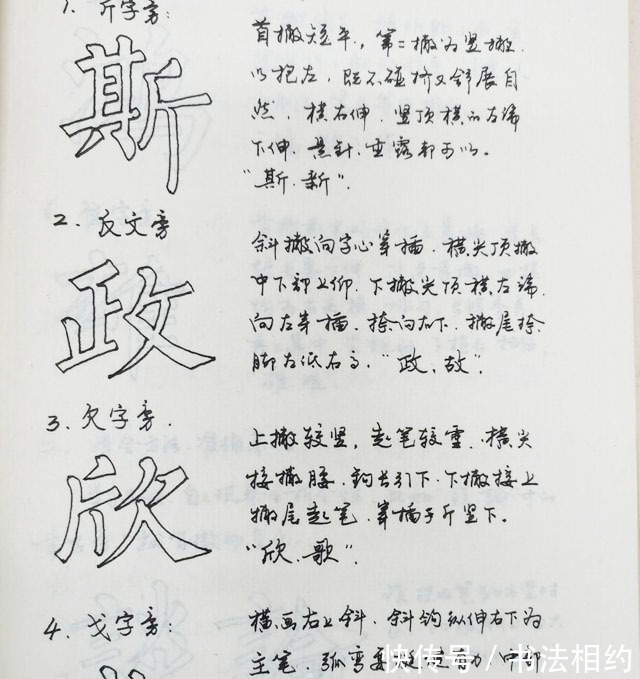 1. 斤字旁:
首撇短平,第二撇为竖撇
以抱左,既不碰挤又舒展自
然,横右伸,竖顶横的左端
下伸,悬针、垂露都可以。
“斯、新”.
斯
2. 反文旁
斜撇向字心穿插,横尖顶撇
中下部上仰,下撇尖顶横左端
向左穿插,捺向右下,撇尾捺
脚左低右高,“政、故”.
政
3. 欠字旁.
上撇较竖,起笔较重,横尖
接撇腰,钩长引下,下撇接上
撇尾起笔,穿插于斤竖下。
“欣、歌”.
欣
4. 戈字旁:
横画右上斜,斜钩纵伸右下为
主笔,弧弯要
中部
快传号/书法相约